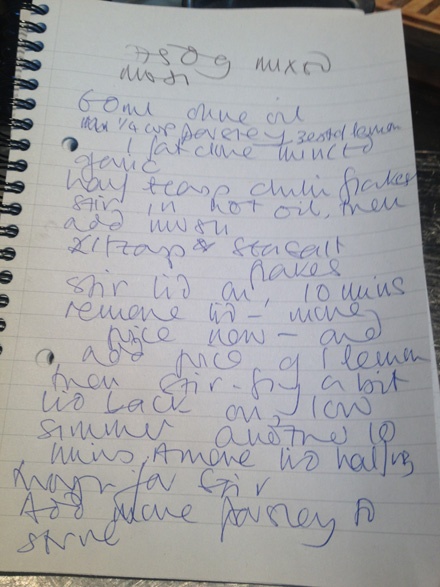 750g mixed
mush
60ml olive oil
max 1/4 cup parsley, zest of lemon
1 fat clove minced
garlic
half teasp chilli flakes
stir in hot oil, then
add mush
x 1 teasp sea salt
flakes
stir lid on, 10 mins
remove lid - more
juice now - and
add juice of 1 lemon
then stir-fry a bit
lid back on, low
simmer another 10
mins, remove lid halfway
through for stir
Add more parsley to
serve